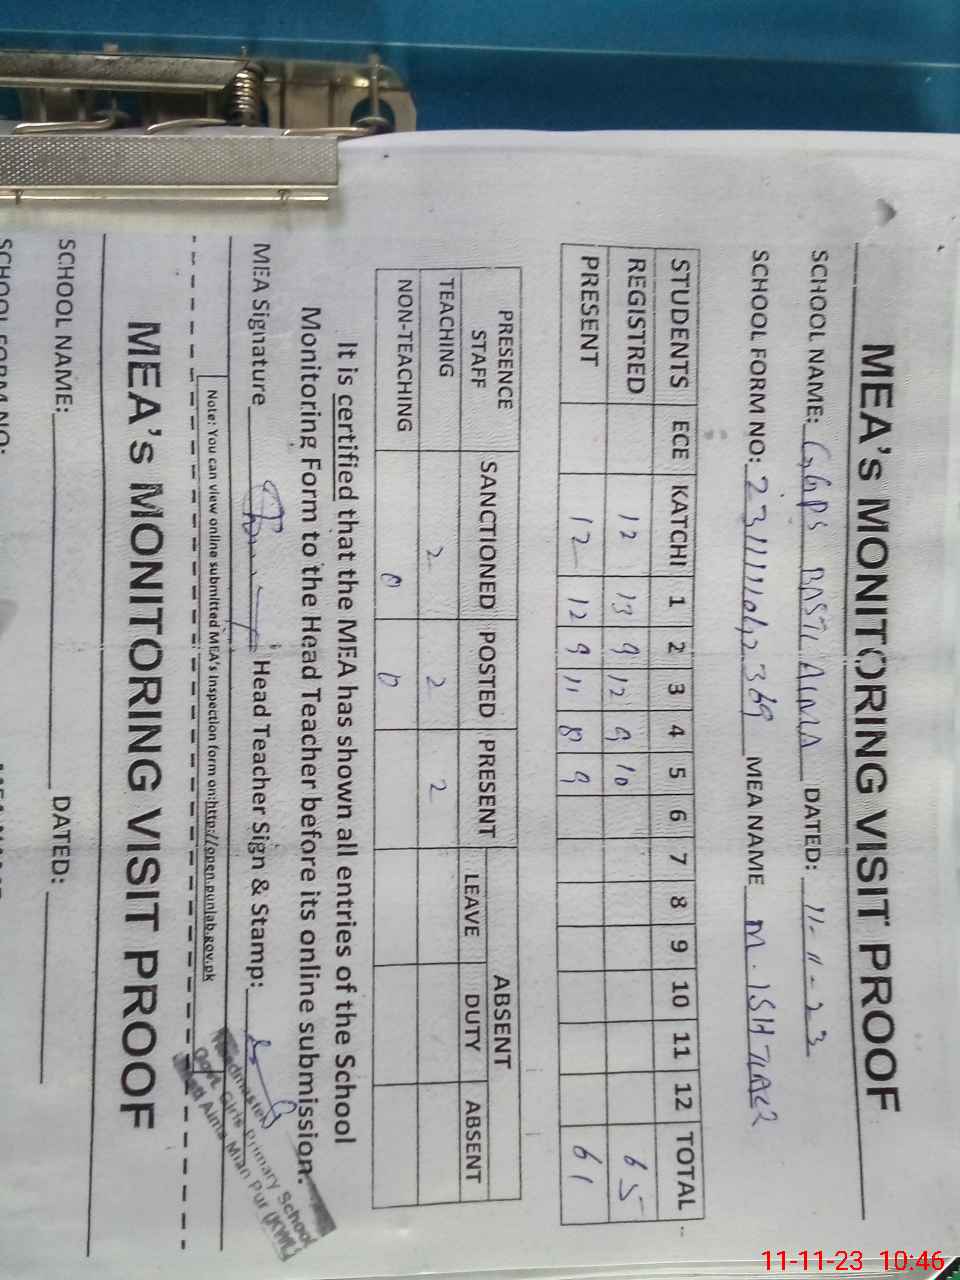 MEA's MONITORING VISIT PROOF
SCHOOL NAME: GGPS BASTI AIMA DATED: 11-11-23
SCHOOL FORM NO: MEA NAME M. ISHTIAQ
STUDENTS ECE KATCHI 1 2 3 4 5 6 7 8 9 10 11 12 TOTAL
REGISTRED 12 13 9 12 9 10 65
PRESENT 12 12 9 11 8 9 61
PRESENCE STAFF SANCTIONED POSTED PRESENT ABSENT
LEAVE DUTY ABSENT
TEACHING 2 2 2
NON-TEACHING 0 0
It is certified that the MEA has shown all entries of the School
Monitoring Form to the Head Teacher before its online submission.
MEA Signature Head Teacher Sign & Stamp:
Headmaster
Govt. Girls Primary School
Aima Mian Pur (KWL)
Note: You can view online submitted MEA's inspection form on:http://open.punjab.gov.pk
MEA's MONITORING VISIT PROOF
SCHOOL NAME: DATED:
SCHOOL FORM NO: MEA NAME
11-11-23 10:46